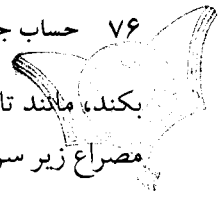 ۷۶ حساب ج
بکند، مانند تا
مصراع زیر سر